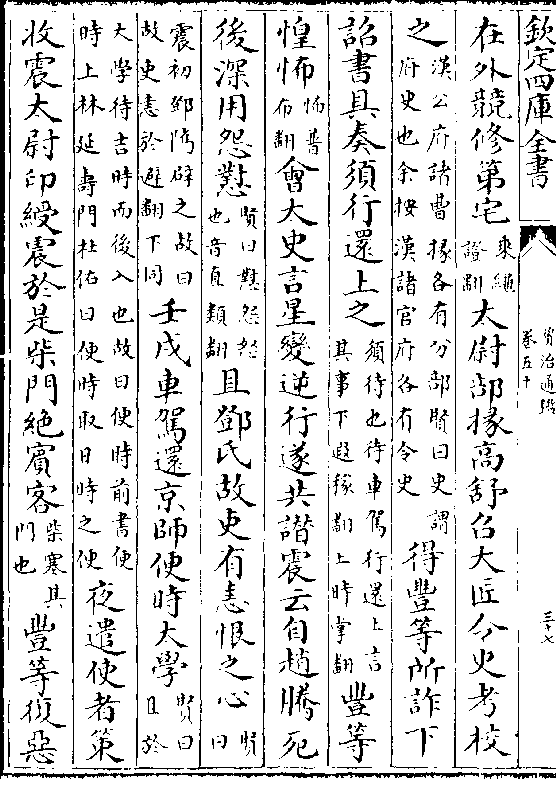 欽定四庫全書
資治通鑑
卷五十
三十七
在外競修第宅乘繩證翻太尉部掾高舒召大匠令史考校
之漢公府諸曹掾各有分部賢曰史謂府史也余按漢諸官府各有令史得豐等所詐下
詔書具奏須行還上之須待也待車駕行還上言其事下遐稼翻上時掌翻豐等
惶怖怖普布翻會大史言星變逆行遂共譖震云自趙騰死
後深用怨懟賢曰懟怨怒也音直類翻且鄧氏故吏有恚恨之心賢曰
震初鄧隲辟之故曰故吏恚於避翻下同壬戌車駕還京師便時大學賢曰且於
大學待吉時而後入也故曰便時前書便時上林延壽門杜佑曰便時取日時之便夜遣使者策
收震太尉印綬震於是柴門絕賓客柴塞其門也豐等復惡